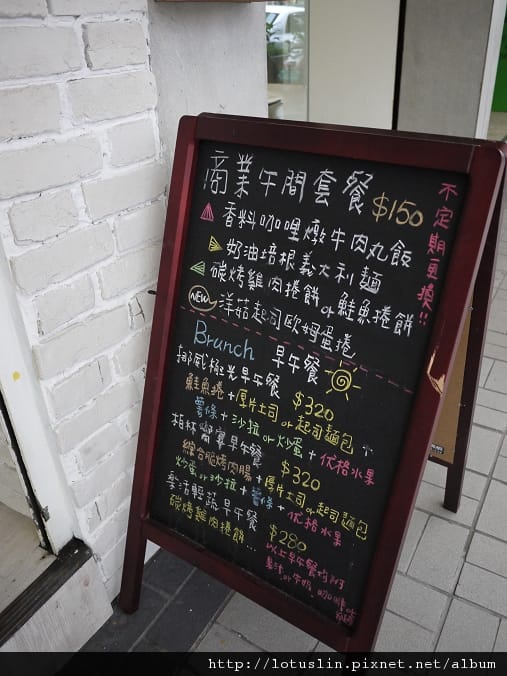 商業午間套餐 $150
不定期更換!!
香料咖哩燉牛肉丸飯
奶油培根義大利麵
碳烤雞肉捲餅 or 鮭魚捲餅
NEW 洋菇起司歐姆蛋捲
Brunch 早午餐
挪威極光早午餐 $320
鮭魚捲+厚片土司 or 起司麵包+
薯條+沙拉 or 炒蛋+優格水果
柏林饗宴早午餐 $320
綜合脆烤肉腸+厚片土司 or 起司麵包
炒蛋 or 沙拉+薯條+优格水果
樂活輕蔬早午餐 $280
碳烤雞肉捲餅...
以上早午餐均附
果汁 or 牛奶、咖啡 or
http://lotuslin.pixnet.net/album